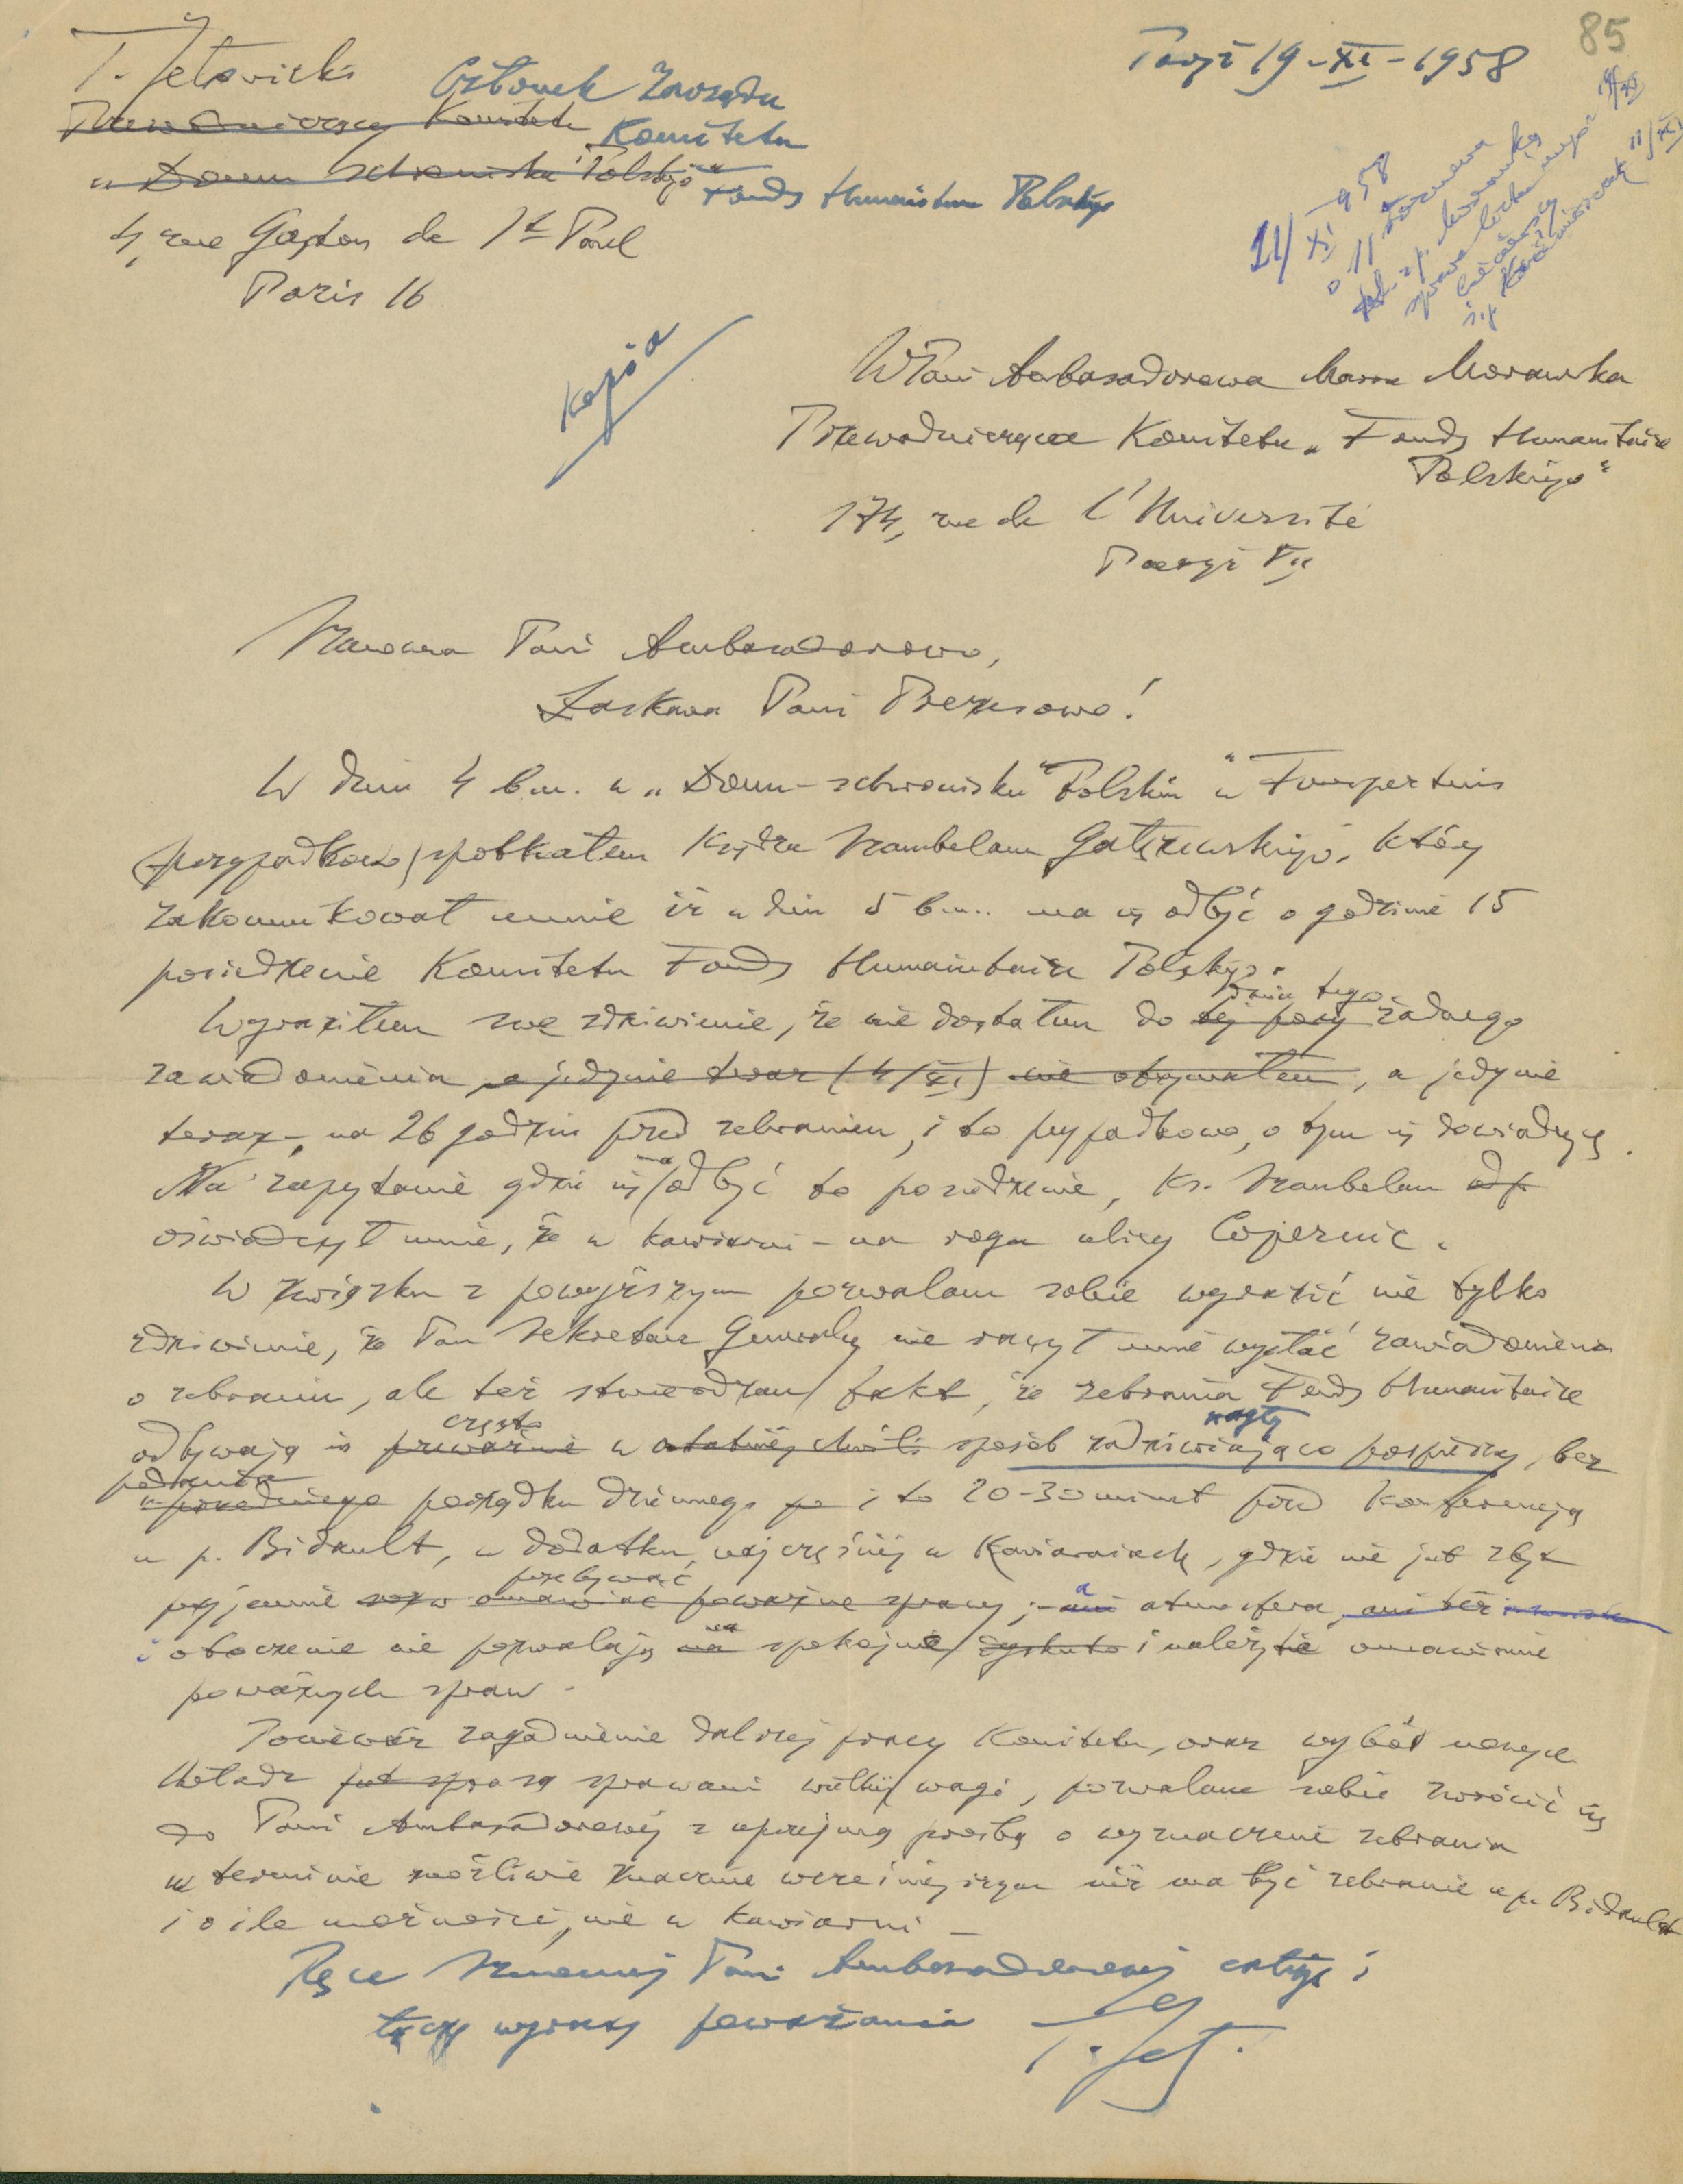 85
Paryż 19-XI-1958
T. Jetowicki
Członek Zarządu
Przewodniczący Komitetu
Komitetu
„Domu Schroniska Polskiego"
Fonds Humanitaire Polskiego
4, rue Gaston de St Paul
Paris 16
Kopia
21/XI 1958
o 11
WPani Ambasadorowa Morawska
Przewodnicząca Komitetu „Fonds Humanitaire
Polskiego"
174, rue de l'Université
Paryż VII
Szanowna Pani Ambasadorowo,
Łaskawa Pani Prezesowo!
W dniu 4 b.m. w „Domu-schronisku Polskim" w
(przypadkowo) spotkałem Księdza Szambelana Gałęzewskiego, który
zakomunikował mnie iż w dniu 5 b.m. ma się odbyć o godzinie 15
posiedzenie Komitetu Fonds Humanitaire Polskiego.
dnia tego
Wyraziłem swe zdziwienie, że nie dostałem do tej pory żadnego
zawiadomienia, a jedynie teraz (4/XI) nie otrzymałem, a jedynie
teraz, na 26 godzin przed zebraniem, i to przypadkowo, o tym się dowiaduję.
Na zapytanie gdzie się ma odbyć to posiedzenie, Ks. Szambelan odp
oświadczył mnie, że w kawiarni - na rogu ulicy Copernic.
W związku z powyższym pozwalam sobie wyrazić nie tylko
zdziwienie, że Pan Sekretarz Generalny nie raczył mnie wysłać zawiadomienia
o zebraniu, ale też stwierdzam fakt, że zebrania Fonds Humanitaire
często nagły
odbywają się przeważnie w ostatniej chwili sposób zadziwiająco pospieszny, bez
podania
uprzedniego porządku dziennego i to 20-30 minut przed konferencją
u p. Bidault, w dodatku, najczęściej w Kawiarniach, gdzie nie jest zbyt
przebywać
przyjemnie omawiać poważne sprawy; - a atmosfera, ani też
i otoczenie nie pozwalają na spokojne i należyte omawianie
poważnych spraw.
Ponieważ zagadnienie dalszej pracy Komitetu, oraz wybór nowych
Władz są sprawami wielkiej wagi, pozwalam sobie zwrócić się
do Pani Ambasadorowej z uprzejmą prośbą o wyznaczenie zebrania
w terminie możliwie znacznie wcześniejszym niż ma być zebranie u p. Bidault
i o ile możności, nie w kawiarni -
Ręce Szanownej Pani Ambasadorowej całuję i
łączę wyrazy poważania
T. Jet.